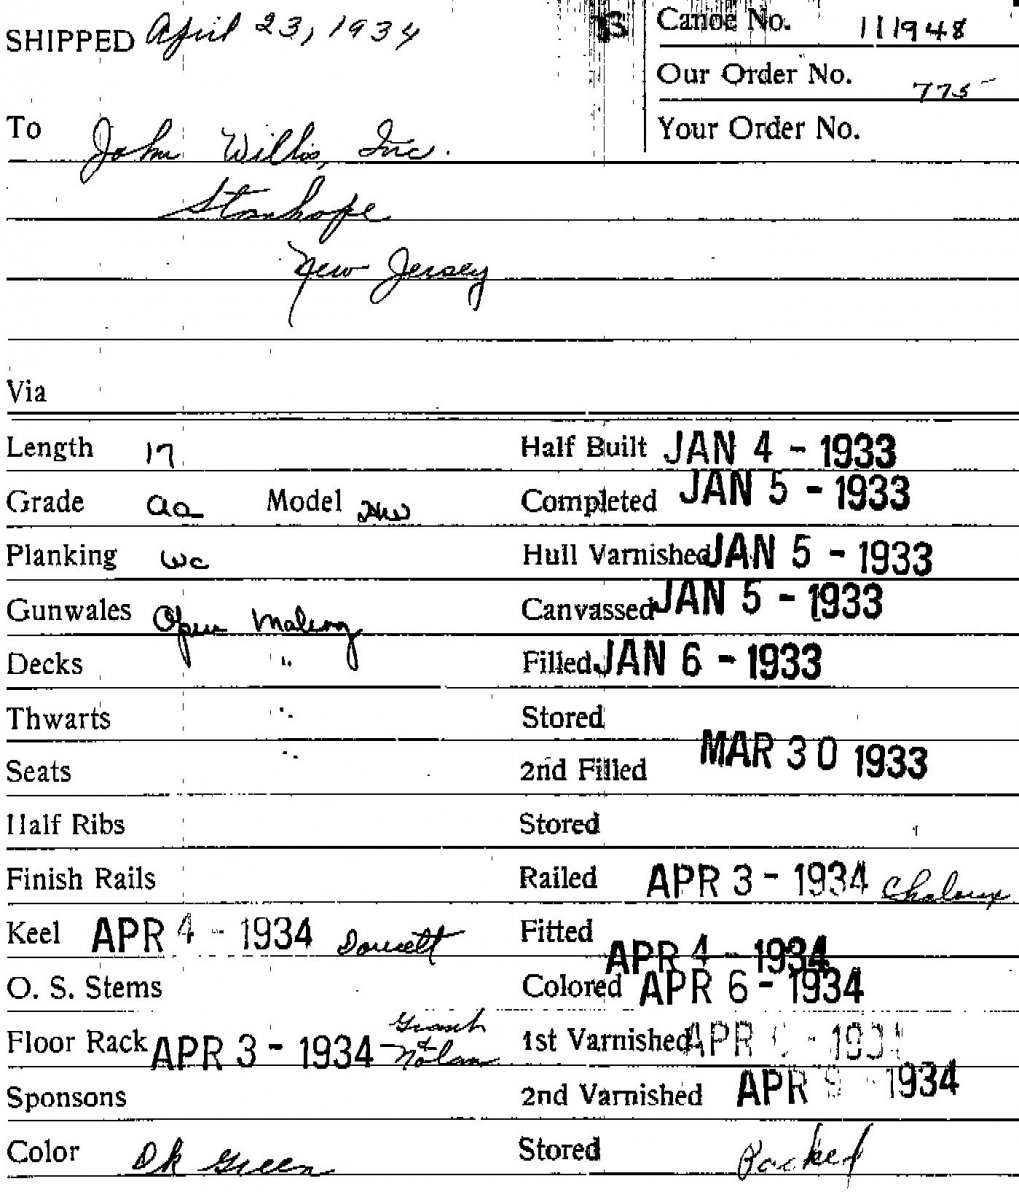 SHIPPED April 23, 1934
13
Canoe No. 111948
Our Order No. 775
To John Willis, Inc.
Your Order No.
Stanhope
New Jersey
Via
Length 17 Half Built JAN 4 - 1933
Grade aa Model HW Completed JAN 5 - 1933
Planking wc Hull Varnished JAN 5 - 1933
Gunwales Open Mahog Canvassed JAN 5 - 1933
Decks " Filled JAN 6 - 1933
Thwarts " Stored
Seats " 2nd Filled MAR 30 1933
Half Ribs Stored
Finish Rails Railed APR 3 - 1934 Chaloux
Keel APR 4 - 1934 Doucett Fitted APR 4 - 1934
O. S. Stems Colored APR 6 - 1934
Floor Rack APR 3 - 1934 Grant + Nolan 1st Varnished APR - 1934
Sponsons 2nd Varnished APR 9 - 1934
Color Dk Green Stored Packed